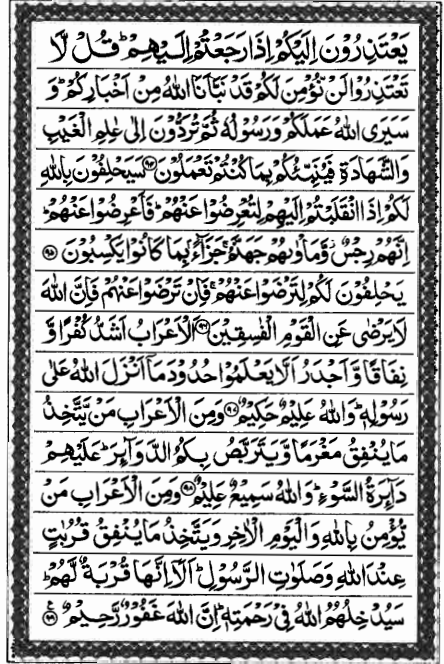 يَعْتَذِرُوْنَ اِلَيْكُمْ اِذَا رَجَعْتُمْ اِلَيْهِمْ ؕ قُلْ لَّا
تَعْتَذِرُوْا لَنْ نُّؤْمِنَ لَكُمْ قَدْ نَبَّاَنَا اللّٰهُ مِنْ اَخْبَارِكُمْ ؕ وَ
سَيَرَى اللّٰهُ عَمَلَكُمْ وَرَسُوْلُهٗ ثُمَّ تُرَدُّوْنَ اِلٰى عٰلِمِ الْغَيْبِ
وَالشَّهَادَةِ فَيُنَبِّئُكُمْ بِمَا كُنْتُمْ تَعْمَلُوْنَ ﴿۹۴﴾ سَيَحْلِفُوْنَ بِاللّٰهِ
لَكُمْ اِذَا انْقَلَبْتُمْ اِلَيْهِمْ لِتُعْرِضُوْا عَنْهُمْ ؕ فَاَعْرِضُوْا عَنْهُمْ ؕ
اِنَّهُمْ رِجْسٌ ۫ وَّمَاْوٰىهُمْ جَهَنَّمُ ۚ جَزَآءًۢ بِمَا كَانُوْا يَكْسِبُوْنَ ﴿۹۵﴾
يَحْلِفُوْنَ لَكُمْ لِتَرْضَوْا عَنْهُمْ ۚ فَاِنْ تَرْضَوْا عَنْهُمْ فَاِنَّ اللّٰهَ
لَا يَرْضٰى عَنِ الْقَوْمِ الْفٰسِقِيْنَ ﴿۹۶﴾ اَلْاَعْرَابُ اَشَدُّ كُفْرًا وَّ
نِفَاقًا وَّاَجْدَرُ اَلَّا يَعْلَمُوْا حُدُوْدَ مَاۤ اَنْزَلَ اللّٰهُ عَلٰى
رَسُوْلِهٖ ؕ وَاللّٰهُ عَلِيْمٌ حَكِيْمٌ ﴿۹۷﴾ وَمِنَ الْاَعْرَابِ مَنْ يَّتَّخِذُ
مَا يُنْفِقُ مَغْرَمًا وَّيَتَرَبَّصُ بِكُمُ الدَّوَآئِرَ ؕ عَلَيْهِمْ
دَآئِرَةُ السَّوْءِ ؕ وَاللّٰهُ سَمِيْعٌ عَلِيْمٌ ﴿۹۸﴾ وَمِنَ الْاَعْرَابِ مَنْ
يُّؤْمِنُ بِاللّٰهِ وَالْيَوْمِ الْاٰخِرِ وَيَتَّخِذُ مَا يُنْفِقُ قُرُبٰتٍ
عِنْدَ اللّٰهِ وَصَلَوٰتِ الرَّسُوْلِ ؕ اَلَاۤ اِنَّهَا قُرْبَةٌ لَّهُمْ ؕ
سَيُدْخِلُهُمُ اللّٰهُ فِيْ رَحْمَتِهٖ ؕ اِنَّ اللّٰهَ غَفُوْرٌ رَّحِيْمٌ ﴿۹۹﴾ ع